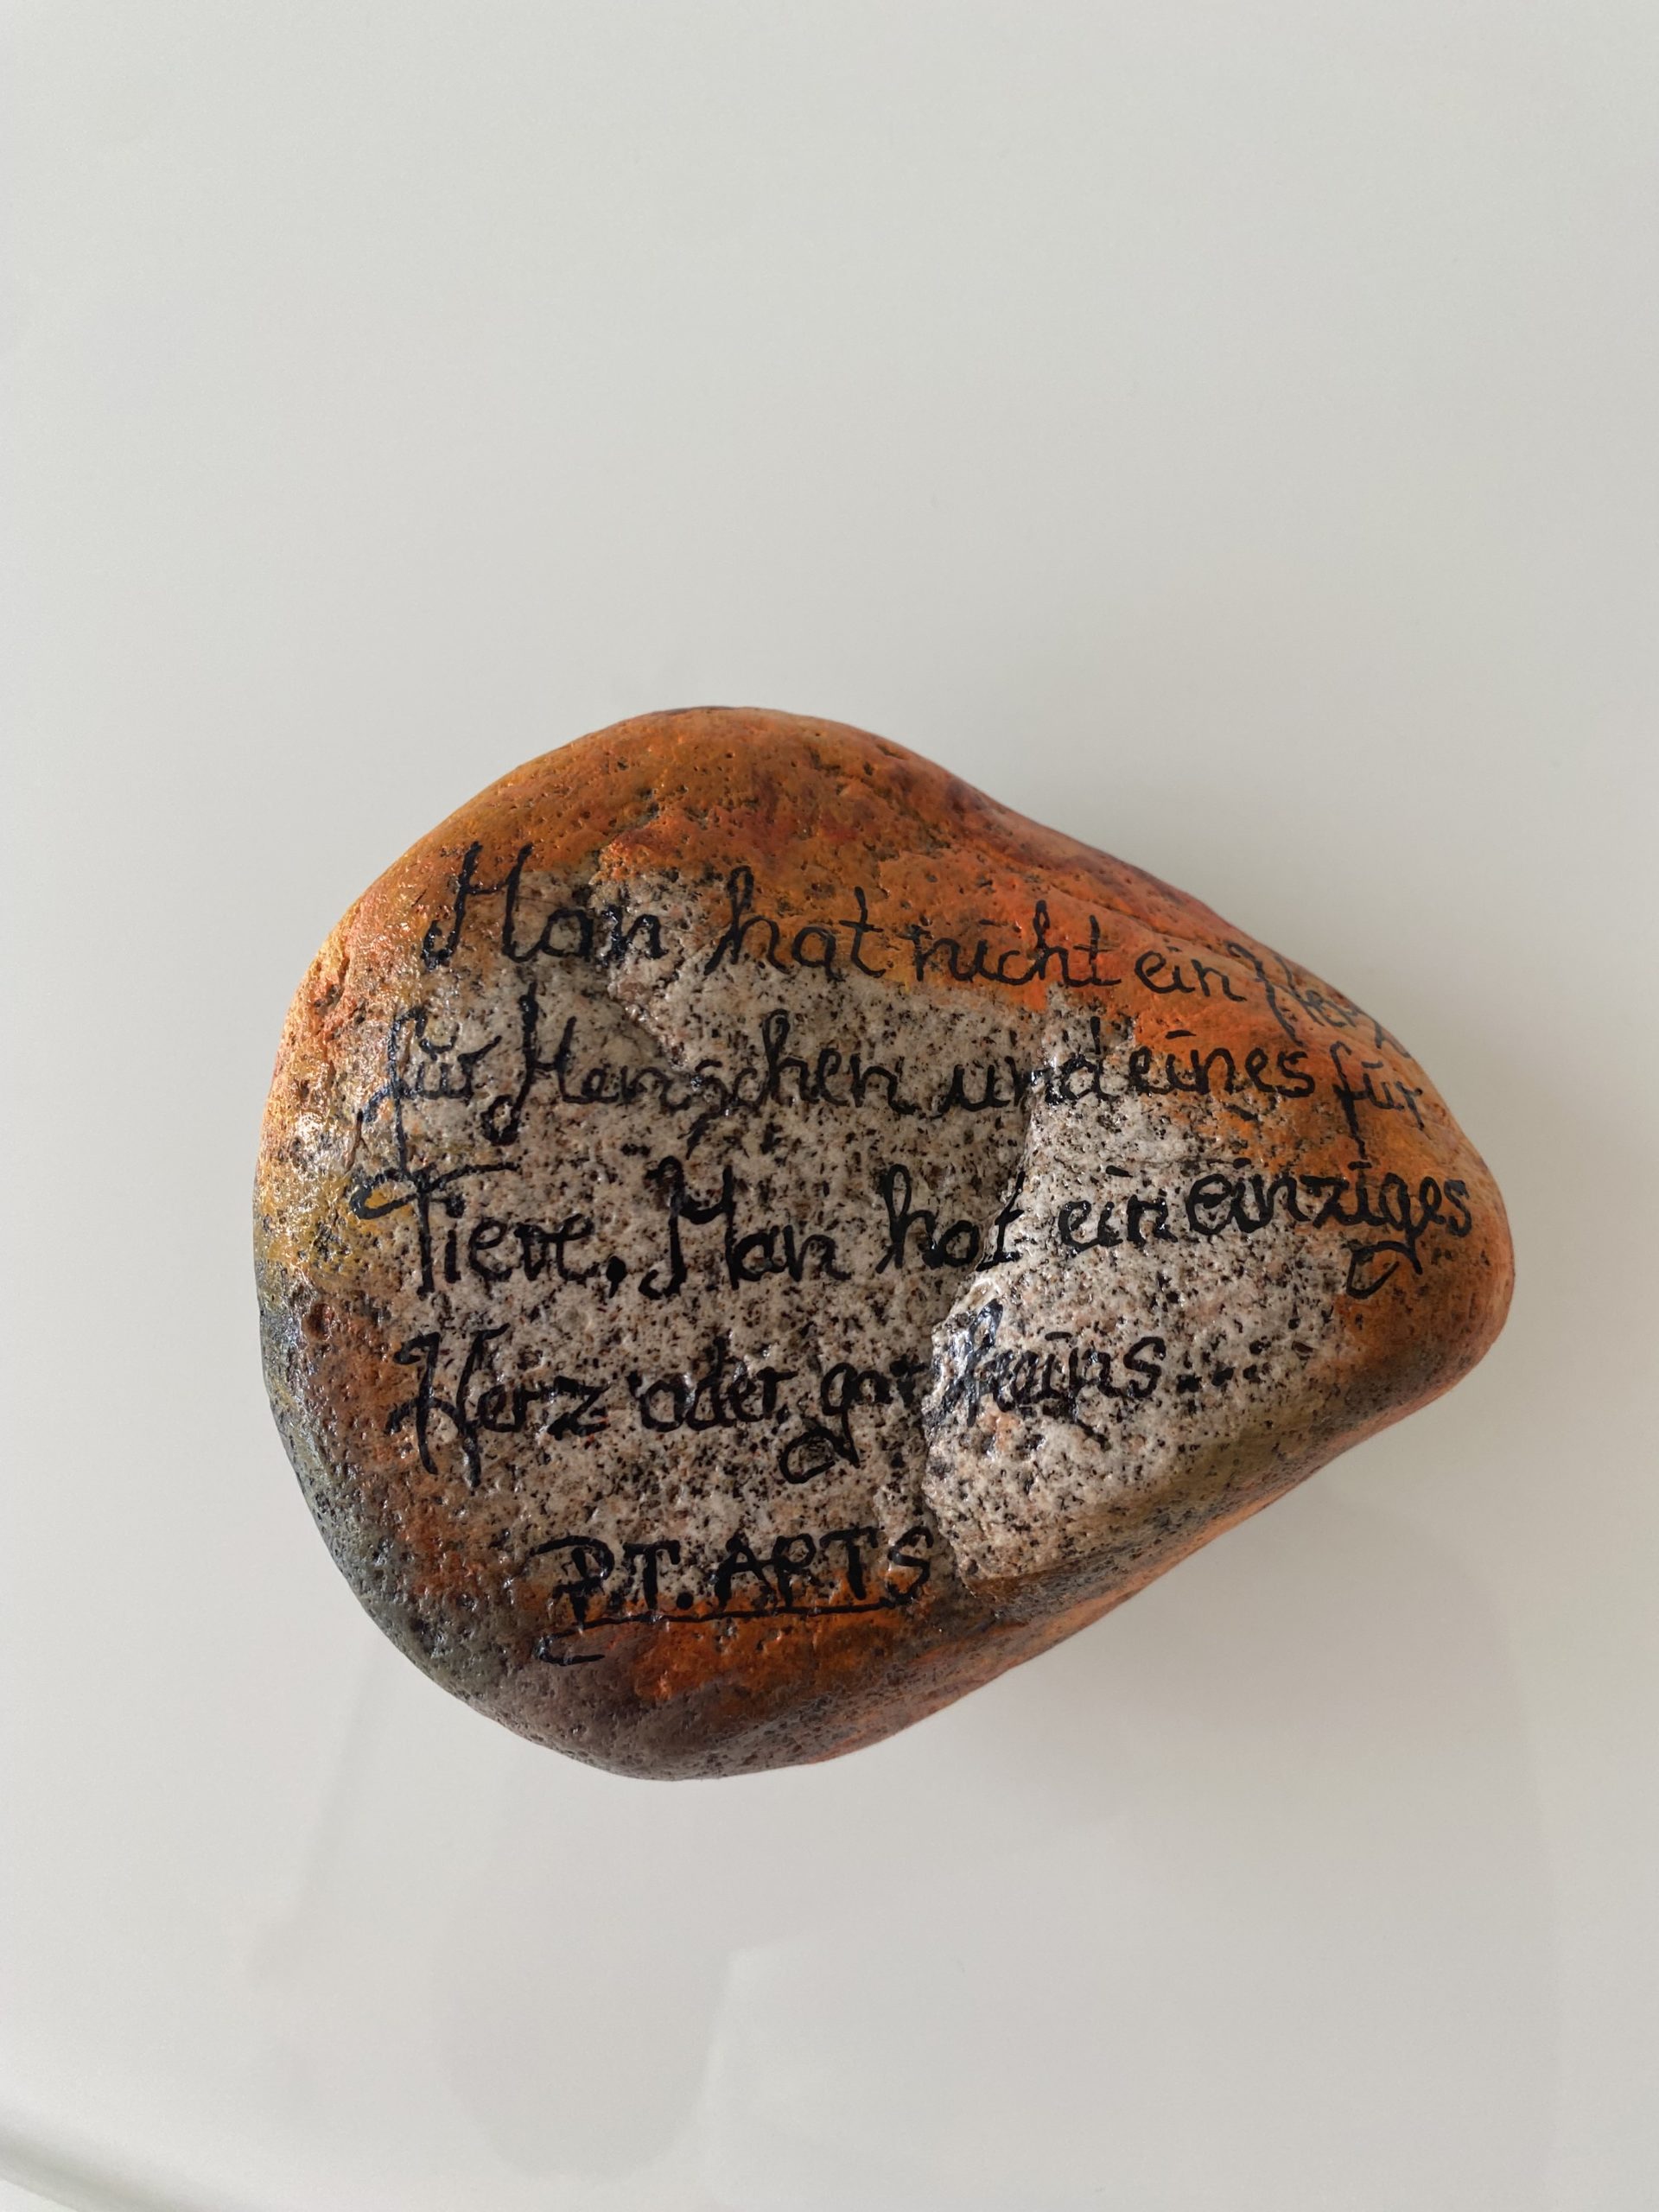 Man hat nicht ein Herz
für Menschen und eines für
Tiere, Man hat ein einziges
Herz oder gar keins...
P.T. ARTS